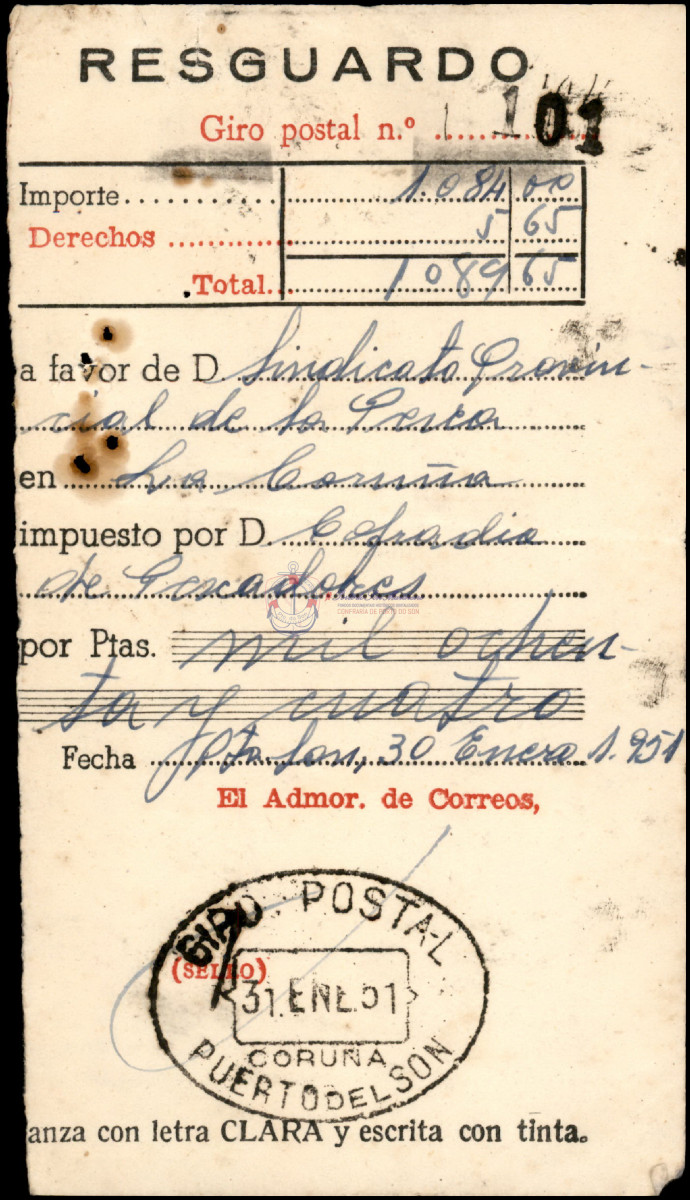 RESGUARDO
Giro postal n.º 101
Importe 1.084 00
Derechos 5 65
Total 1089 65
a favor de D. Sindicato Provin-
cial de la Pesca
en La Coruña
impuesto por D. Cofradia
de Pescadores
CONFRARÍA DE PORTO DO SON
por Ptas. mil ochen-
ta y cuatro
Fecha Pto. Son, 30 Enero 1.951
El Admor. de Correos,
GIRO POSTAL
(SELLO)
31.ENE.51
CORUÑA
PUERTO DEL SON
anza con letra CLARA y escrita con tinta.